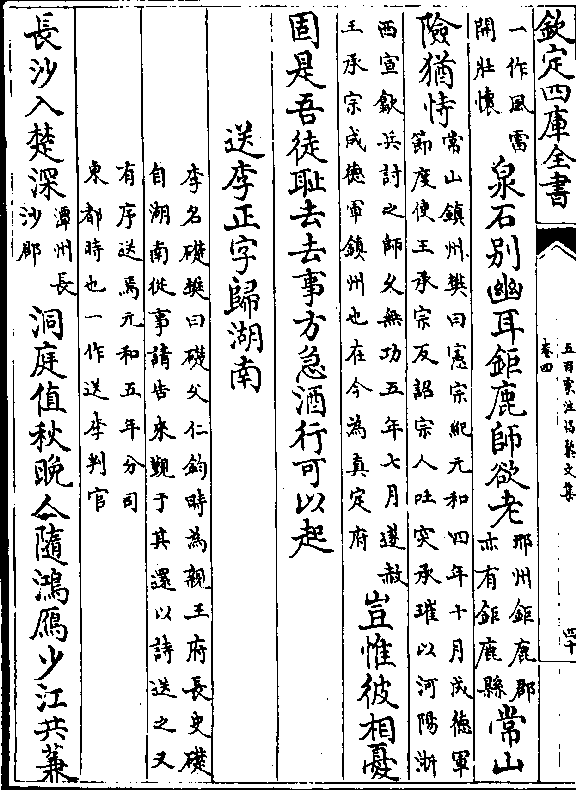 欽定四庫全書
五百家注昌黎文集
卷四
四十
一作風雷
開壯懷
泉石別幽耳鉅鹿師欲老
邢州鉅鹿郡
亦有鉅鹿縣
常山
險猶恃
常山鎮州樊曰憲宗紀元和四年十月成德軍
節度使王承宗反詔宗人吐突承璀以河陽浙
西宣歙兵討之師久無功五年七月遂赦
王承宗成德軍鎮州也在今為真定府
豈惟彼相憂
固是吾徒恥去去事方急酒行可以起
送李正字歸湖南
李名礎樊曰礎父仁鈞時為親王府長史礎
自湖南從事請告來覲于其還以詩送之又
有序送焉元和五年分司
東都時也一作送李判官
長沙入楚深
潭州長
沙郡
洞庭值秋晚人隨鴻鴈少江共蒹